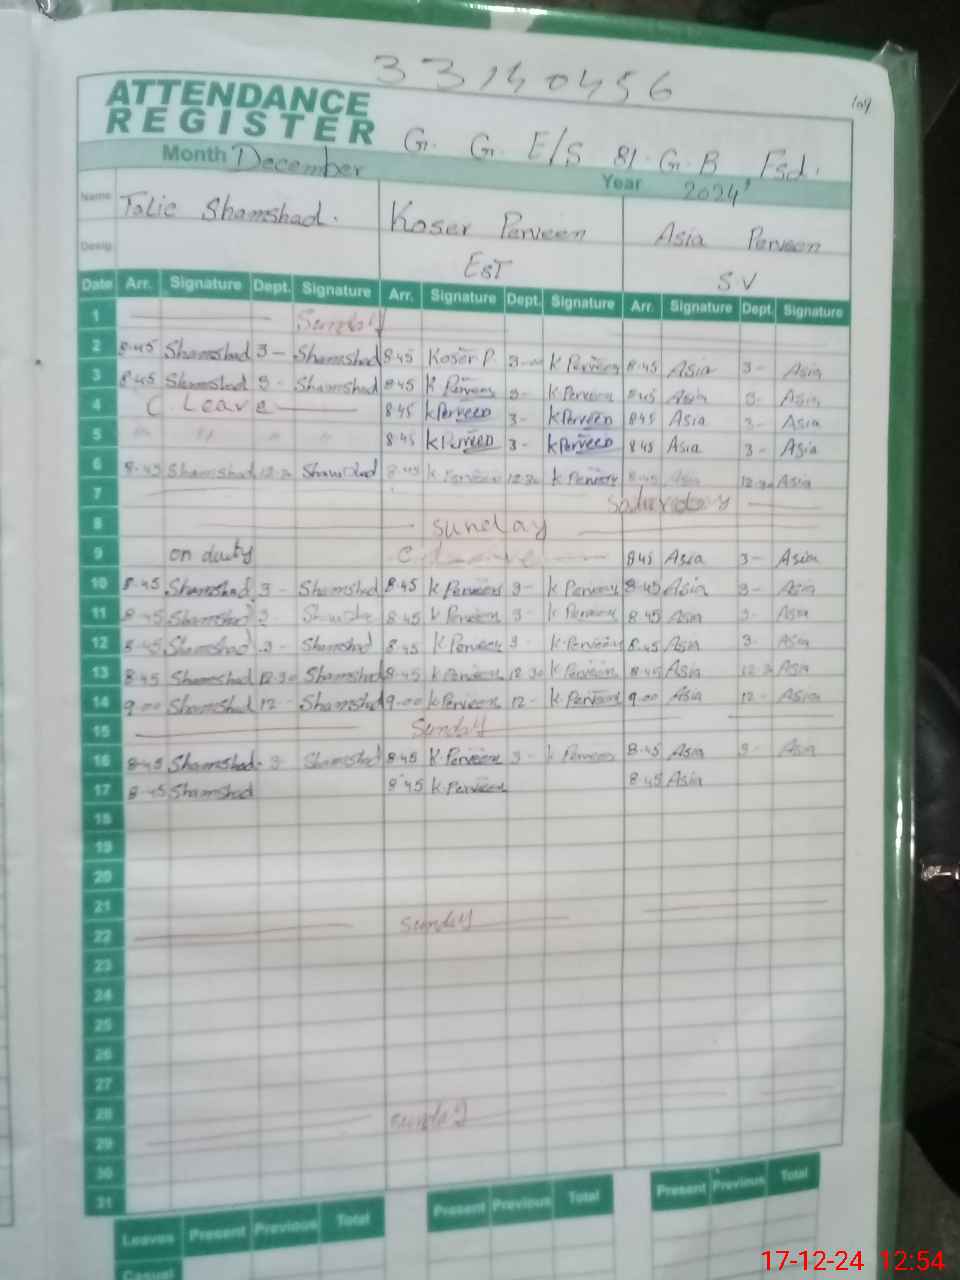 33140456
109
ATTENDANCE
REGISTER G. G. E/S 81. G. B Fsd.
Month December Year 2024
Name Shamshad. Koser Perveen Asia Perveen
Desig. EST S.V
Date Arr. Signature Dept. Signature Arr. Signature Dept. Signature Arr. Signature Dept. Signature
1 Sunday
2 8.45 Shamshad 3- Shamshad 8.45 Koser P. 3- K Perveen 8.45 Asia 3- Asia
3 8.45 Shamshad 3- Shamshad 8.45 K Perveen 3- K Perveen 8.45 Asia 3- Asia
4 C. Leave 8.45 K Perveen 3- K Perveen 8.45 Asia 3- Asia
5 " " " " 8.45 K Perveen 3- K Perveen 8.45 Asia 3- Asia
6 8.45 Shamshad 12.30 Shamshad 8.45 K Perveen 12.30 K Perveen 8.45 Asia 12.30 Asia
7 Saturday
8 Sunday
9 on duty C. Leave 8.45 Asia 3- Asia
10 8.45 Shamshad 3- Shamshad 8.45 K Perveen 3- K Perveen 8.45 Asia 3- Asia
11 8.45 Shamshad 3- Shamshad 8.45 K Perveen 3- K Perveen 8.45 Asia 3- Asia
12 8.45 Shamshad 3- Shamshad 8.45 K Perveen 3- K Perveen 8.45 Asia 3- Asia
13 8.45 Shamshad 12.30 Shamshad 8.45 K Perveen 12.30 K Perveen 8.45 Asia 12.30 Asia
14 9.00 Shamshad 12- Shamshad 9.00 K Perveen 12- K Perveen 9.00 Asia 12- Asia
15 Sunday
16 8.45 Shamshad 3- Shamshad 8.45 K Perveen 3- K Perveen 8.45 Asia 3- Asia
17 8.45 Shamshad 8.45 K Perveen 8.45 Asia
18
19
20
21
22 Sunday
23
24
25
26
27
28 Sunday
29
30
31
Leaves Present Previous Total Present Previous Total Present Previous Total
Casual
17-12-24 12:54